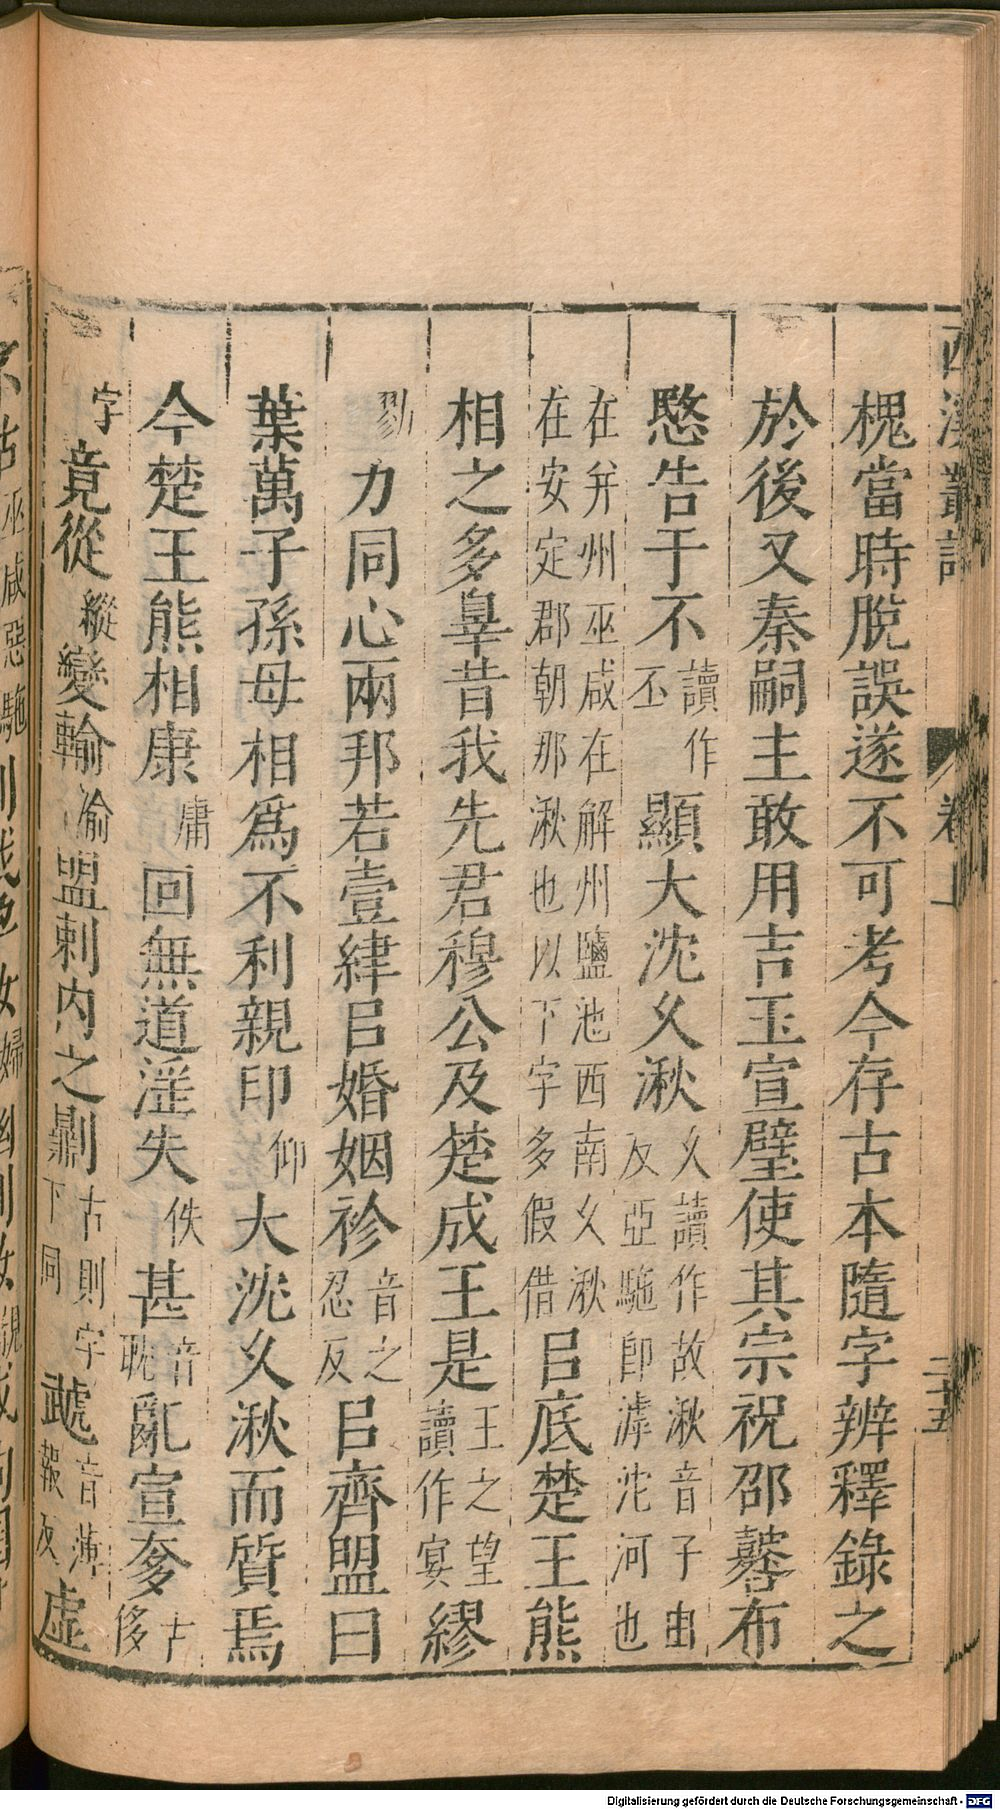 西溪叢語
卷上
二十五
槐當時脫誤遂不可考今存古本隨字辨釋錄之
於後又秦嗣主敢用吉玉宣璧使其宗祝邵鼛布
愍告于不讀作丕顯大沈久湫久讀作故湫音子由反亞駞卽滹沱河也
在幷州巫咸在解州鹽池西南久湫在安定郡朝那湫也以下字多假借㠯底楚王熊
相之多辠昔我先君穆公及楚成王是王之望讀作寔繆
勠力同心兩邦若壹繂㠯婚姻袗音之忍反㠯齊盟曰
葉萬子孫母相爲不利親卬仰大沈久湫而質焉
今楚王熊相康庸回無道淫失佚甚音耽亂宣奓古侈
字竟從縱變輸渝盟剌内之𠟭古則字下同虣音薄報反虐
Digitalisierung gefördert durch die Deutsche Forschungsgemeinschaft - DFG